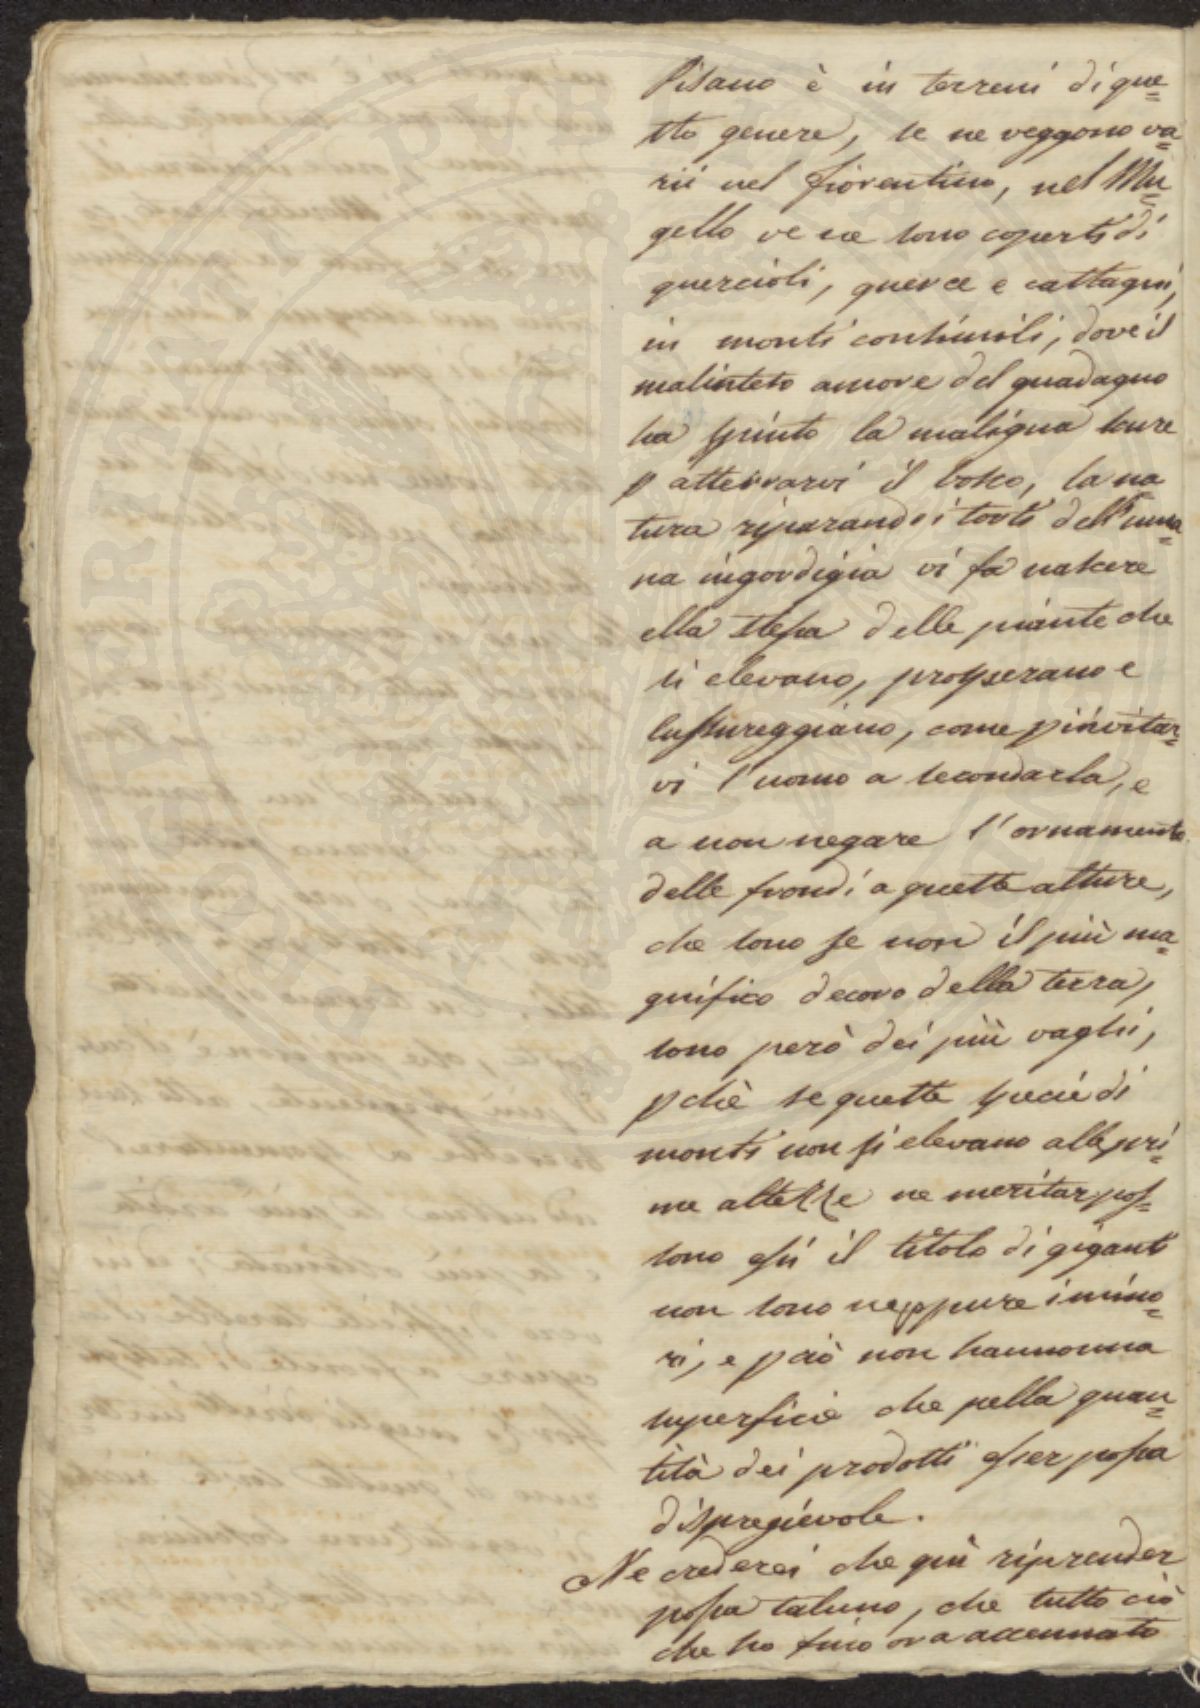 Pisano è in terreni di que=
sto genere, se ne veggono va=
rii nel fiorentino, nel Mu=
gello ve ne sono coperti di
quercioli, querce e castagni,
in monti consimili, dove il
malinteso amore del guadagno
ha spinto la maligna scure
p atterrarvi il bosco, la na
tura riparando i torti dell'uma=
na ingordigia vi fa nascere
ella stessa delle piante che
si elevano, prosperano e
lussureggiano, come p invitar=
vi l'uomo a secondarla, e
a non negare l'ornamento
delle frondi a queste alture,
che sono se non il più ma=
gnifico decoro della terra,
sono però dei più vaghi,
pchè se queste specie di
monti non si elevano alle pri=
me altezze ne meritar pos=
sono essi il titolo di giganti
non sono neppure i mino=
ri, e pciò non hanno una
superficie che pella quan=
tità dei prodotti esser possa
dispregievole.
Ne crederei che quì riprender
possa taluno, che tutto ciò
che ho fino ora accennato